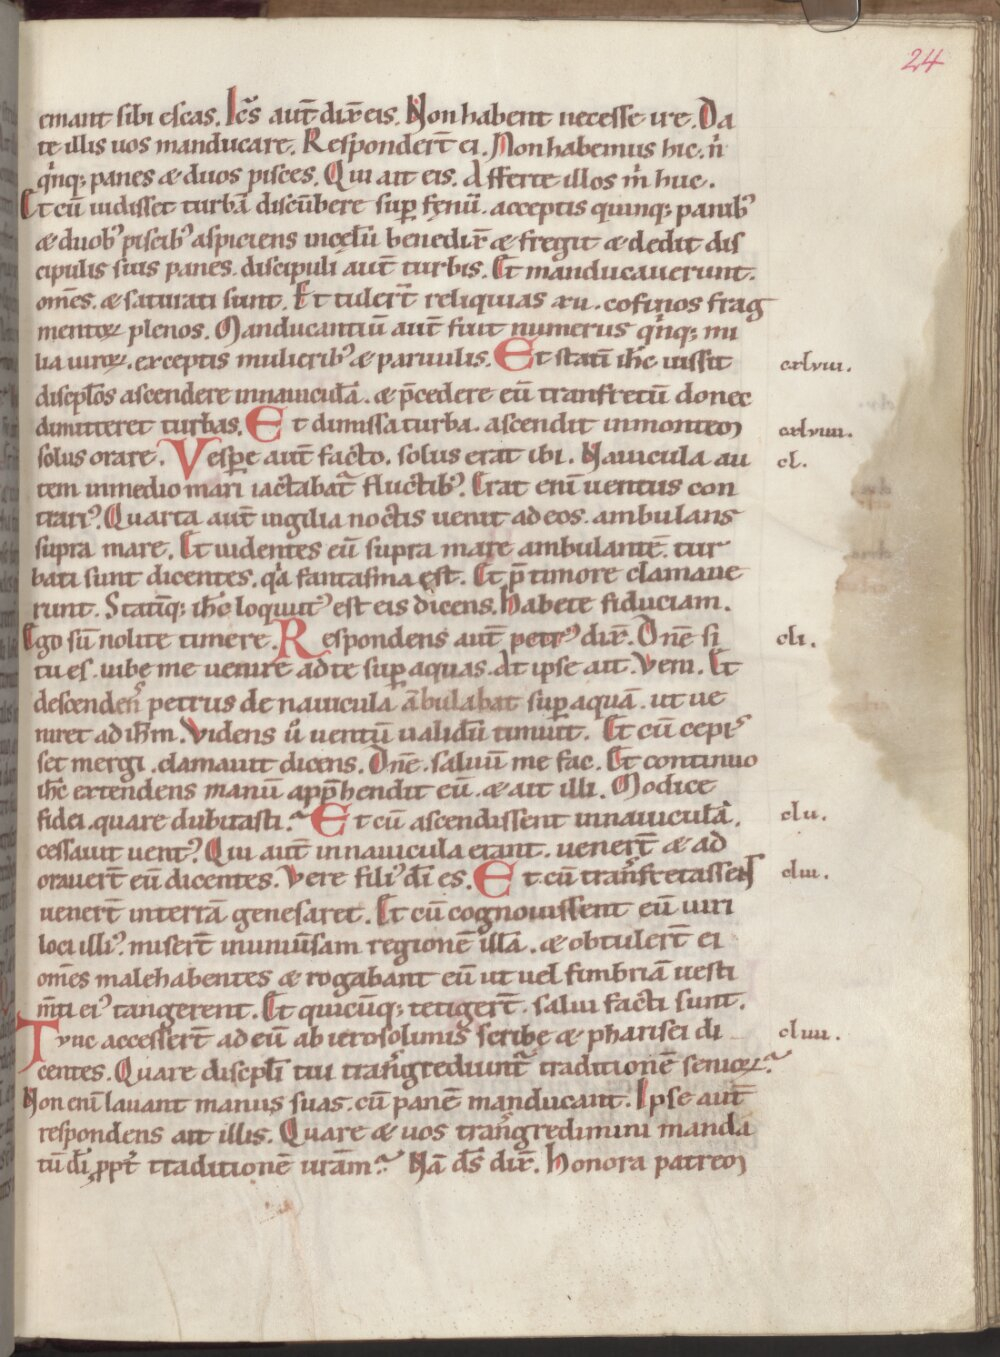 24
emant sibi escas. Ic̄s aut̄ dix̄ eis. Non habent necesse ire. Da
te illis uos manducare. Respondert̄ ei. Non habemus hic. n̄
q̇nq; panes & duos pisces. Qui ait eis. Afferte illos m̄ huc.
Et cū uidisset turbā discūbere sup̲ fęnū. acceptis quinq; panib᾽
& duob᾽ piscib᾽ aspiciens incęlū benedix̄ & fregit & dedit dis
cipulis suis panes. discipuli aut̄ turbis. Et manducauerunt.
om̄s. & saturati sunt. Et tulert̄ reliquias xii. cofinos frag
mentoꝝ plenos. Manducantiū aut̄ fuit numerus q̇nq; mi
lia uiroꝝ. exceptis mulierib᾽ & paruulis. Et statī ihc̄ iussit
cxlviii.
discipl̄os ascendere innauiculā. & p̄cedere eū tranfretū donec
dimitteret turbas. Et dimissa turba. ascendit inmontem
cxlviiii.
solus orare. Vesp̲e aut̄ facto. solus erat ibi. Nauicula au
cl.
tem inmedio mari iactabat᷑ fluctib᾽. Erat enī uentus con
trari᾽. Quarta aut̄ uigilia noctis uenit adeos. ambulans
supra mare. Et uidentes eū supra mare ambulantē. tur
bati sunt dicentes. q̇a fantasma est. Et p̄ timore clamaue
runt. Statīq; ihc̄ loquut᾽ est eis dicens. Habete fiduciam.
Ego sū nolite timere. Respondens aut̄ petr᾽ dix̄. Dn̄e si
cli.
tu es. iube me uenire adte sup̲ aquas. At ipse ait. Veni. Et
descendens petrus de nauicula ābulabat sup̲ aquā. ut ue
niret ad ih̄m. Videns u̇ uentū ualidū timuit. Et cū cepis
set mergi. clamauit dicens. Dn̄e. saluū me fac. Et continuo
ihc̄ extendens manū app̄hendit eū. & ait illi. Modice
fidei. quare dubitasti? Et cū ascendissent innauiculā.
clii.
cessauit uent᾽. Qui aut̄ innauicula erant. uenert̄ & ad
orauert̄ eū dicentes. Vere fili᾽ dī es. Et cū transfretassent
cliii.
uenert̄ interrā genesaret. Et cū cognouissent eū uiri
loci illi᾽. misert̄ inuniūsam regionē illā. & obtulert̄ ei
om̄s malehabentes & rogabant eū ut uel fimbriā uesti
m̄ti ei᾽ tangerent. Et quicūq; tetigert̄. salui facti sunt.
Tunc accessert̄ ad eū ab ierosolimis scribę & pharisei di
cliiii.
centes. Quare discipl̄i tui transgrediunt᷑ traditionē senioꝝ?
Non enī lauant manus suas. cū panē manducant. Ipse aut̄
respondens ait illis. Quare & uos transgredimini manda
tū dī pp̲t̄ traditionē uram̄? Nā ds̄ dix̄. Honora patrem